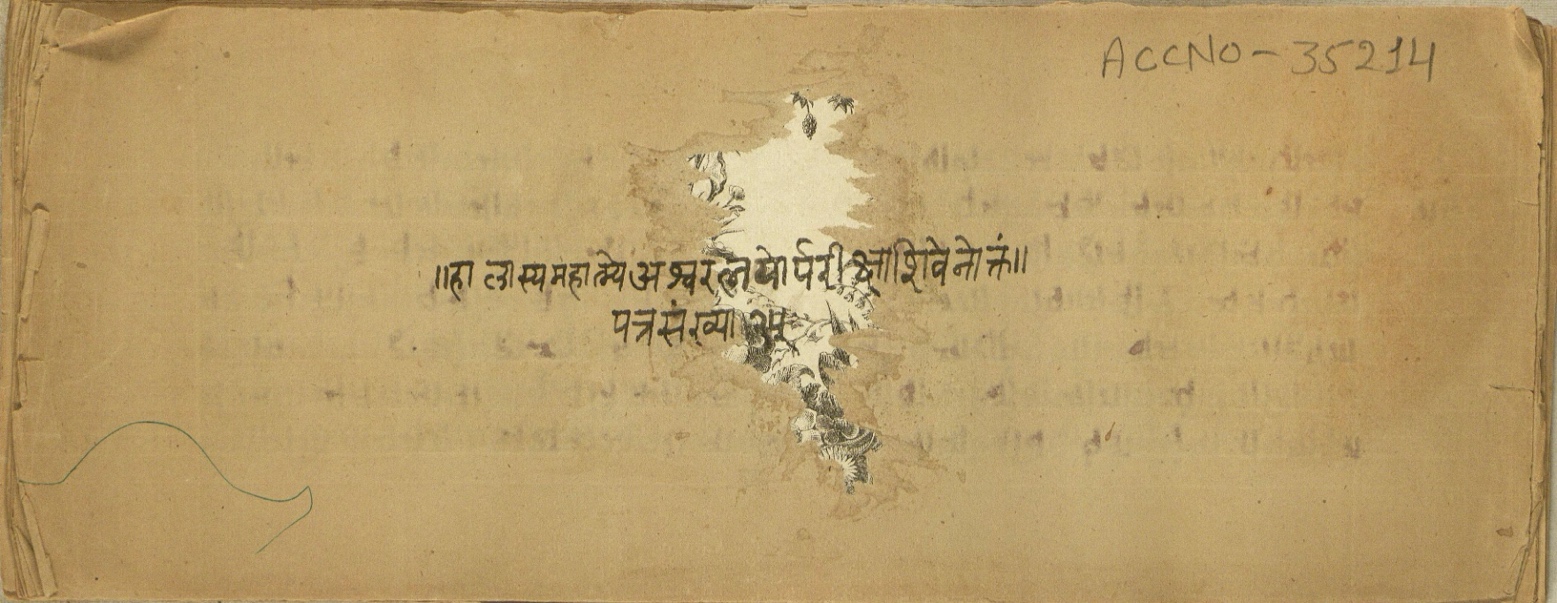 ACCNO - 35214
॥हालास्यमहात्म्ये अश्वरत्नयोर्परीक्षाशिवेनोक्तं॥
पत्रसंख्या ३५